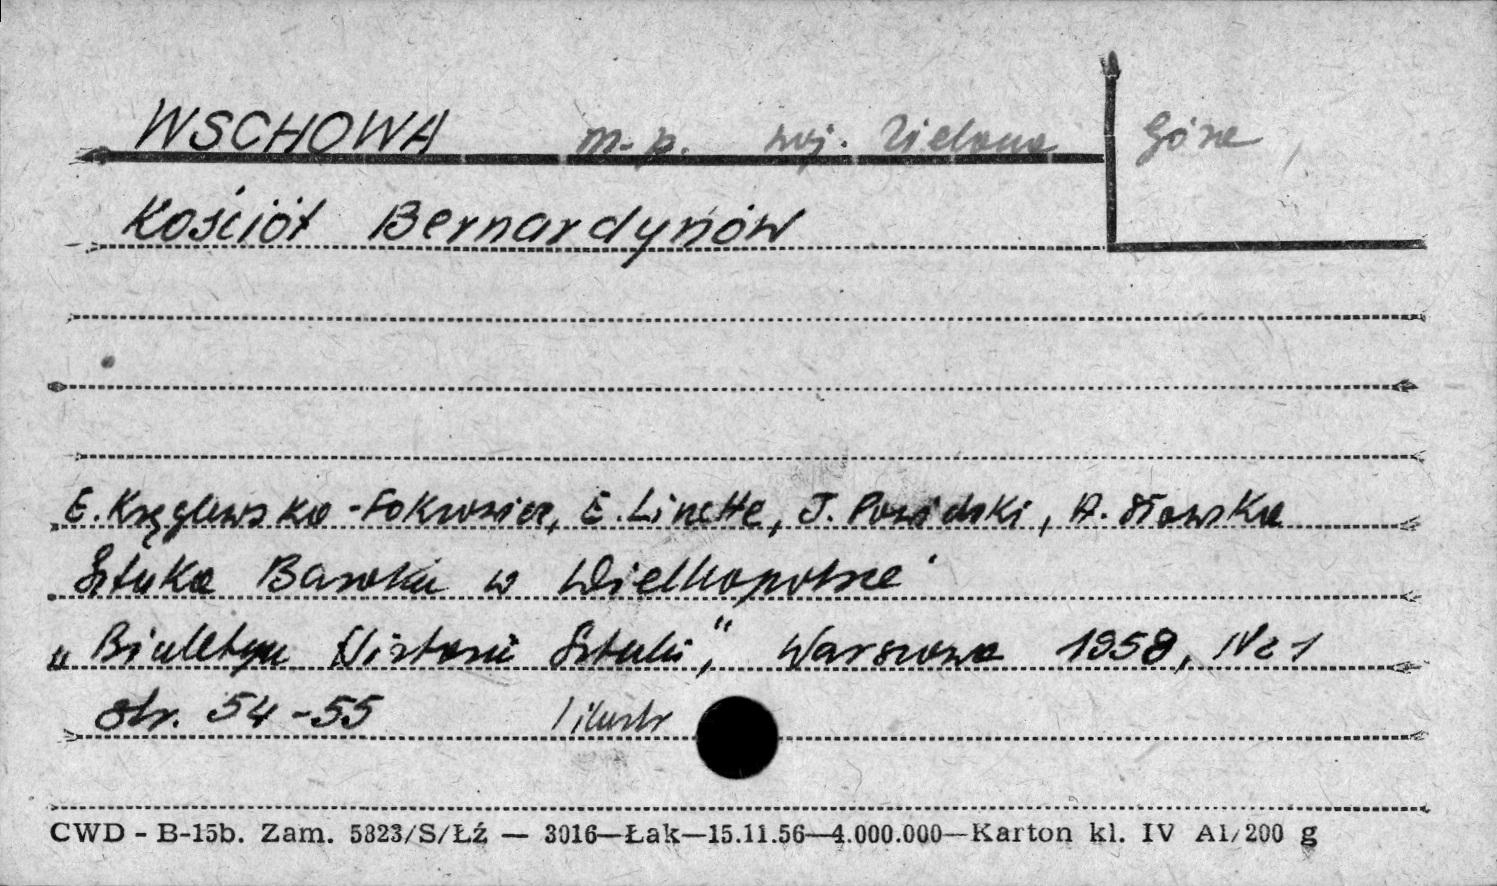 WSCHOWA m-p. woj. Zielona Góra
Kościół Bernardynów
E. Kręglewska-Foksowicz, E. Linette, J. Powidzki, A. Sławska
Sztuka Baroku w Wielkopolsce
„Biuletyn Historii Sztuki," Warszawa 1958, Nr 1
str. 54-55 1 ilustr
CWD - B-15b. Zam. 5823/S/Łź — 3016—Łak—15.11.56—4.000.000—Karton kl. IV A1/200 g